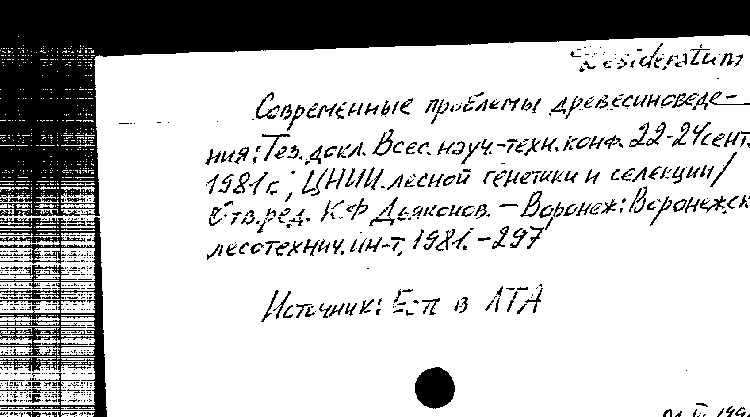 Desideratum
Современные проблемы древесиноведе-
ния: Тез. докл. Всес. науч.-техн. конф. 22-24 сент.
1981 г.; ЦНИИ лесной генетики и селекции/
Отв. ред. К.Ф Дьяконов. – Воронеж: Воронежск
лесотехнич. ин-т, 1981. – 297
Источник: Есть в ЛТА